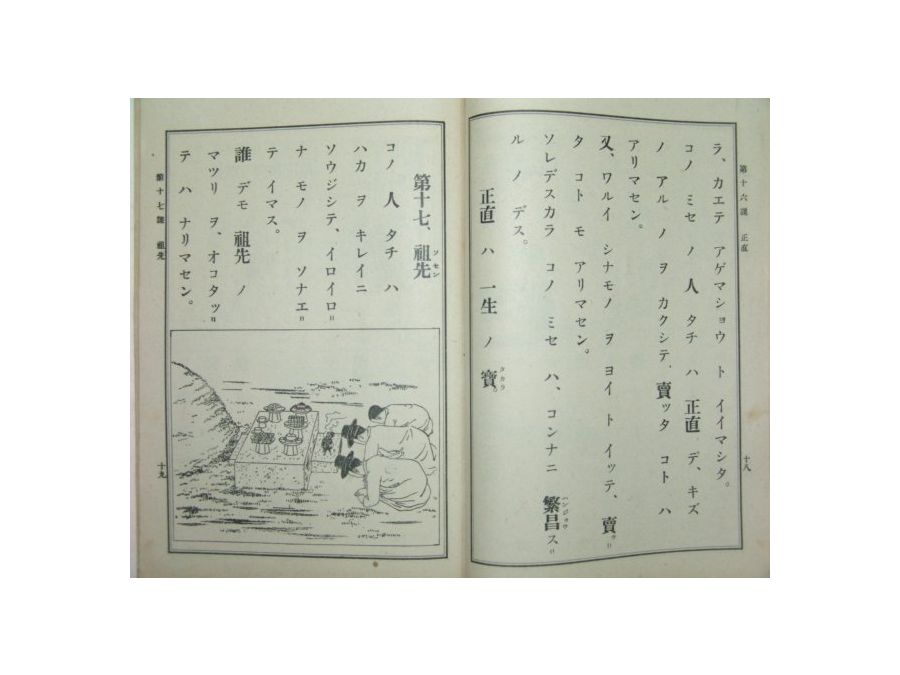 第十六課 正直
十八
ラ、カエテ アゲマショウ ト イイマシタ。
コノ ミセ ノ 人 タチ ハ 正直 デ、キズ
ノ アル ノ ヲ カクシテ、賣ッタ コト ハ
アリマセン。
又、ワルイ シナモノ ヲ ヨイ ト イッテ、賣ッ
タ コト モ アリマセン。
ソレデスカラ コノ ミセ ハ、コンナニ 繁昌 ス
ハンジョウ
ル ノ デス。
正直 ハ 一生 ノ 寶。
タカラ
第十七、祖先
ソセン
コノ 人 タチ ハ
ハカ ヲ キレイニ
ソウジシテ、イロイロ
ナ モノ ヲ ソナエ
テ イマス。
誰 デモ 祖先 ノ
マツリ ヲ、オコタッ
テ ハ ナリマセン。
第十七課 祖先
十九